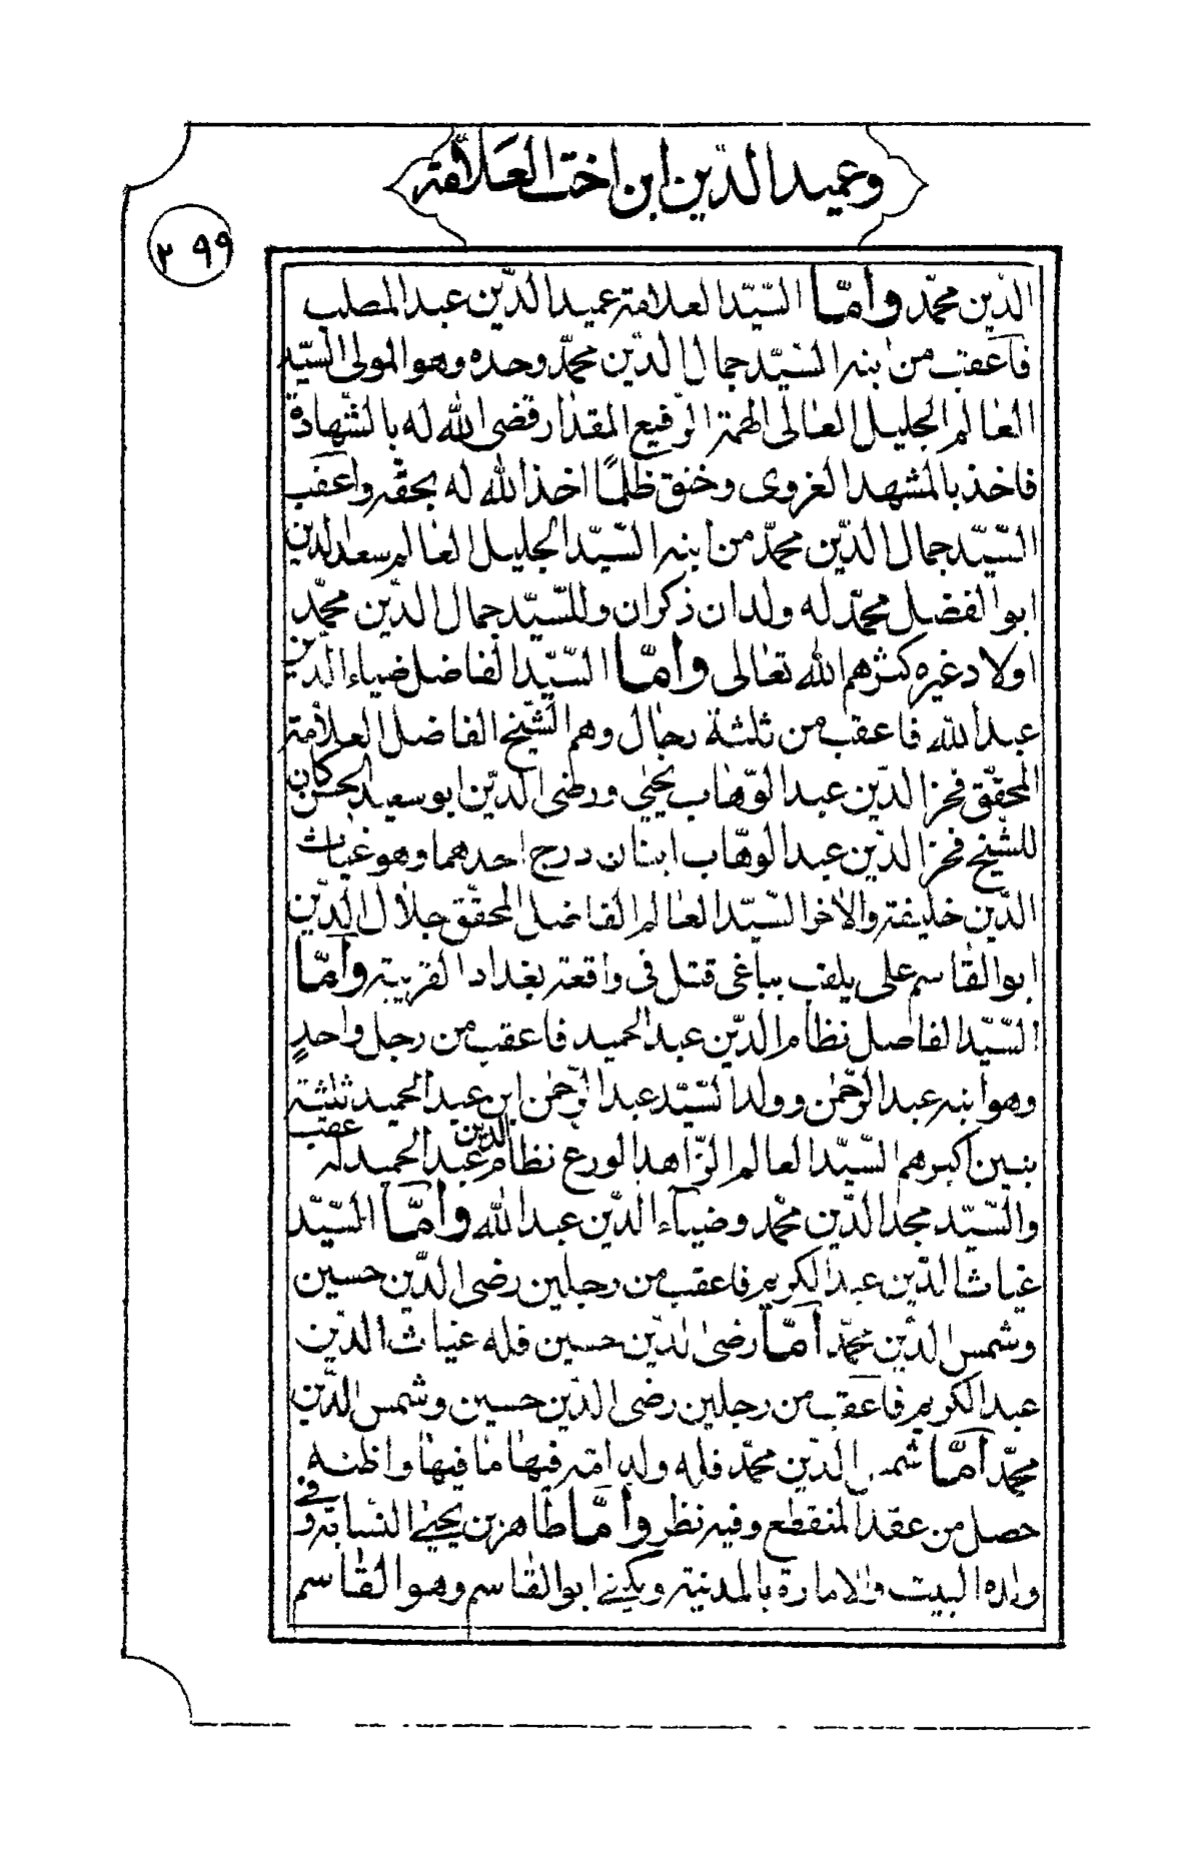 وعميد الدين ابن اخت العلامة
٢٩٩
الدّين محمّد وأمّا السّيّد العلامة عميد الدّين عبد المطلب
فأعقب من ابنه السّيّد جمال الدّين محمّد وحده وهو المولى السّيّد
العالم الجليل العالى الهمة الرّفيع المقدار قضى الله له بالشّهادة
فاخذ بالمشهد الغروى وخنق ظلمًا اخذ الله له بحقّه واعقب
السّيّد جمال الدّين محمّد من ابنه السّيّد الجليل العالم سعد الدين
ابو الفضل محمّد له ولدان ذكران وللسّيّد جمال الدّين محمّد
اولاد غيره كثّرهم الله تعالى وأمّا السّيّد الفاضل ضياء الدّين
عبد الله فاعقب من ثلثة رجال وهم الشّيخ الفاضل العلامة
المحقّق فخر الدّين عبد الوّهاب يحيى ورضى الدّين ابو سعيد الحسن كان
للشّيخ فخر الدّين عبد الوهّاب ابنان درج احدهما وهو غياث
الدّين خليفة والاخر السّيّد العالم الفاضل المحقّق جلال الدّين
ابو القاسم على يلقب بباغى قتل فى واقعة بغداد القريبة وأمّا
السّيّد الفاضل نظام الدّين عبد الحميد فاعقب من رجل واحدٍ
وهو ابنه عبد الرّحمن وولد السّيّد عبد الرّحمن ابن عبد الحميد ثلثة
بنين اكبرهم السّيّد العالم الزّاهد الورع نظام الدين عبد الحميد له عقب
والسّيّد مجد الدّين محمّد وضياء الدّين عبد الله وأمّا السّيّد
غياث الدّين عبد الكريم فاعقب من رجلين رضى الدّين حسين
وشمس الدّين محمّد أمّا رضى الدّين حسين فله غياث الدّين
عبد الكريم فاعقب من رجلين رضى الدّين حسين وشمس الدّين
محمّد أمّا شمس الدّين محمّد فله ولد امّه فيها ما فيها واظنه
حصل من عقد المنقطع وفيه نظر وأمّا طاهر بن يحيى النسّابة وفى
ولده البيت والامارة بالمدنية ويكنى ابو القاسم وهو القاسم